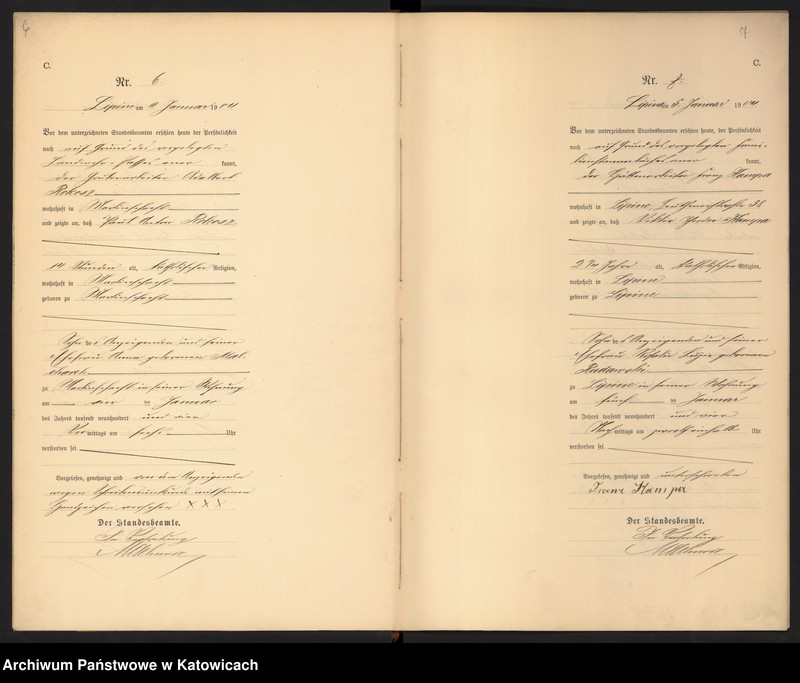 6
C.
Nr. 6.
Lipine am 4 Januar 1904
Vor dem unterzeichneten Standesbeamten erschien heute der Persönlichkeit
nach auf Grund des vorgelegten
Landwehr-Passes aner kannt,
der Grubenarbeiter
wohnhaft in
und zeigte an, daß Paul
14 Stunden alt, katholischer Religion,
wohnhaft in
geboren zu
Sohn des Anzeigenden und seiner
Ehefrau Anna geborenen
zu in seiner Wohnung
am vier ten Januar
des Jahres tausend neunhundert und vier
Vor mittags um sechs Uhr
verstorben sei
Vorgelesen, genehmigt und von dem Anzeigenden
wegen Schreibensunkunde mit seinem
Handzeichen versehen X X X
Der Standesbeamte.
In Vertretung
7
C.
Nr. 7.
Lipine am 5. Januar 1904
Vor dem unterzeichneten Standesbeamten erschien heute, der Persönlichkeit
nach auf Grund des vorgelegten Fami-
lienstammbuches aner kannt,
der Hüttenarbeiter Franz Kampa
wohnhaft in Lipine, 38
und zeigte an, daß Viktor Kampa
Jahre alt, katholischer Religion,
wohnhaft in Lipine
geboren zu Lipine
Sohn des Anzeigenden und seiner
Ehefrau geborenen
zu Lipine in seiner Wohnung
am fünf ten Januar
des Jahres tausend neunhundert und vier
Nach mittags um zwölfeinhalb Uhr
verstorben sei
Vorgelesen, genehmigt und unterschrieben
Franz Kampa
Der Standesbeamte.
In Vertretung
Archiwum Państwowe w Katowicach